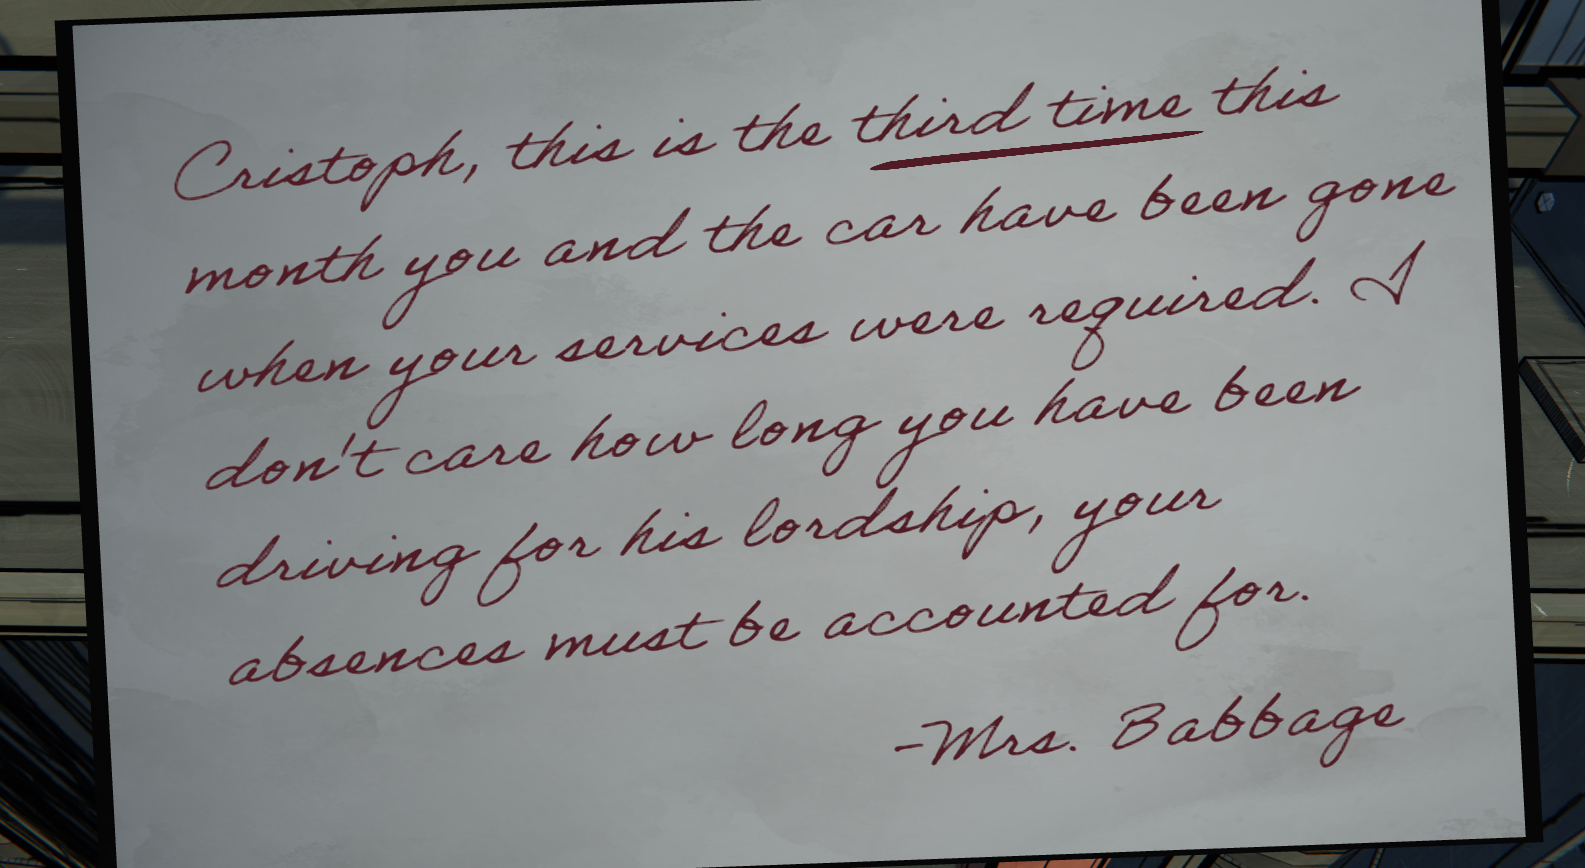 Cristoph, this is the third time this
month you and the car have been gone
when your services were required. I
don't care how long you have been
driving for his lordship, your
absences must be accounted for.
-Mrs. Babbage